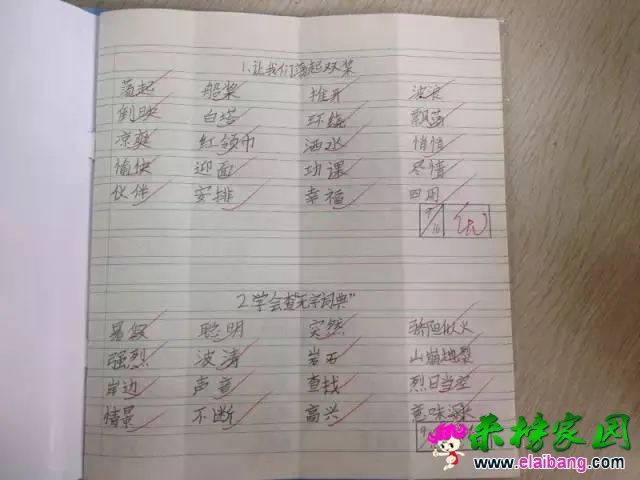 1.让我们荡起双桨
荡起 船桨 推开 波浪
倒映 白塔 环绕 飘荡
凉爽 红领巾 洒水 悄悄
愉快 迎面 功课 尽情
伙伴 安排 幸福 四周
9/16 优
2.学会查"无字词典"
暑假 聪明 突然 骄阳似火
强烈 波涛 岩石 山崩地裂
岸边 声音 查找 烈日当空
情景 不断 高兴 意味深长
亲榜家园
www.elaibang.com